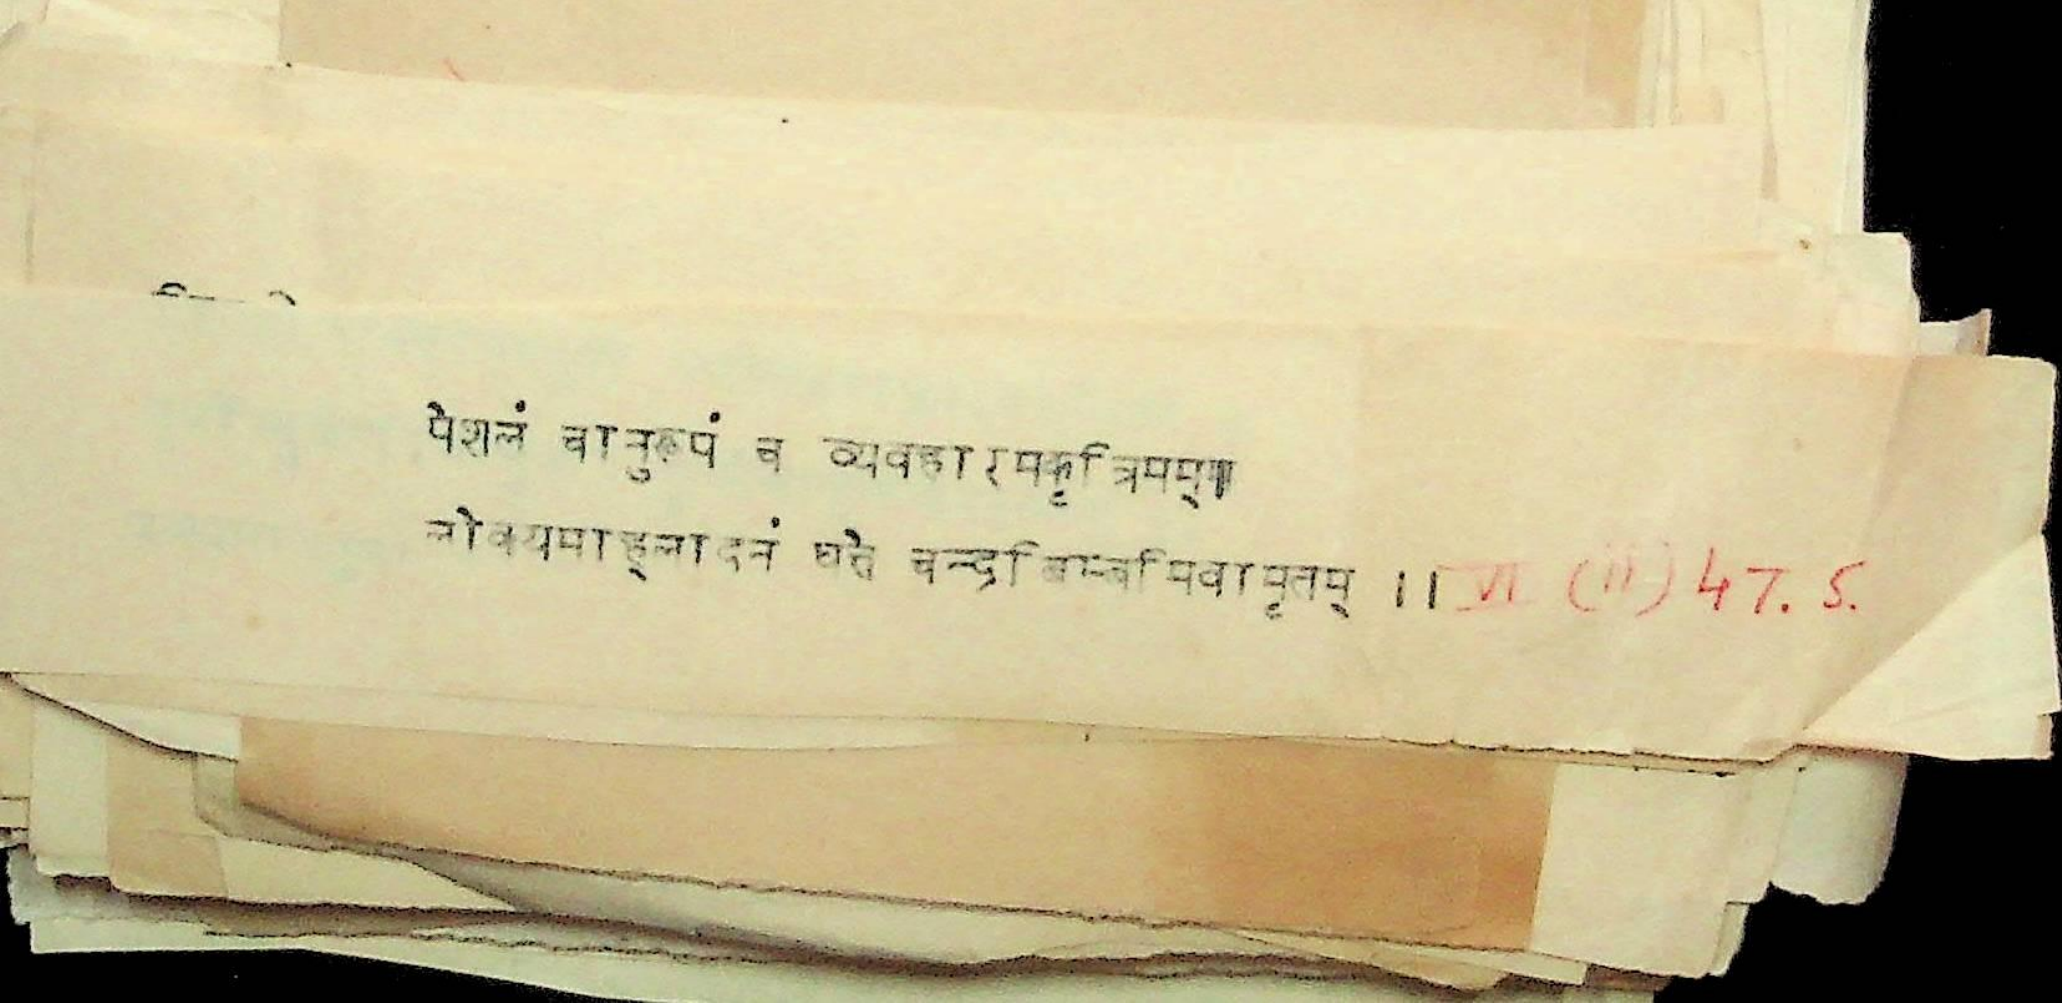 पेशलं चानुरूपं च व्यवहारमकृत्रिमम्।
लोक्यमाह्लादनं धत्ते चन्द्रबिम्बमिवामृतम् ।। VI (ii) 47. 5.